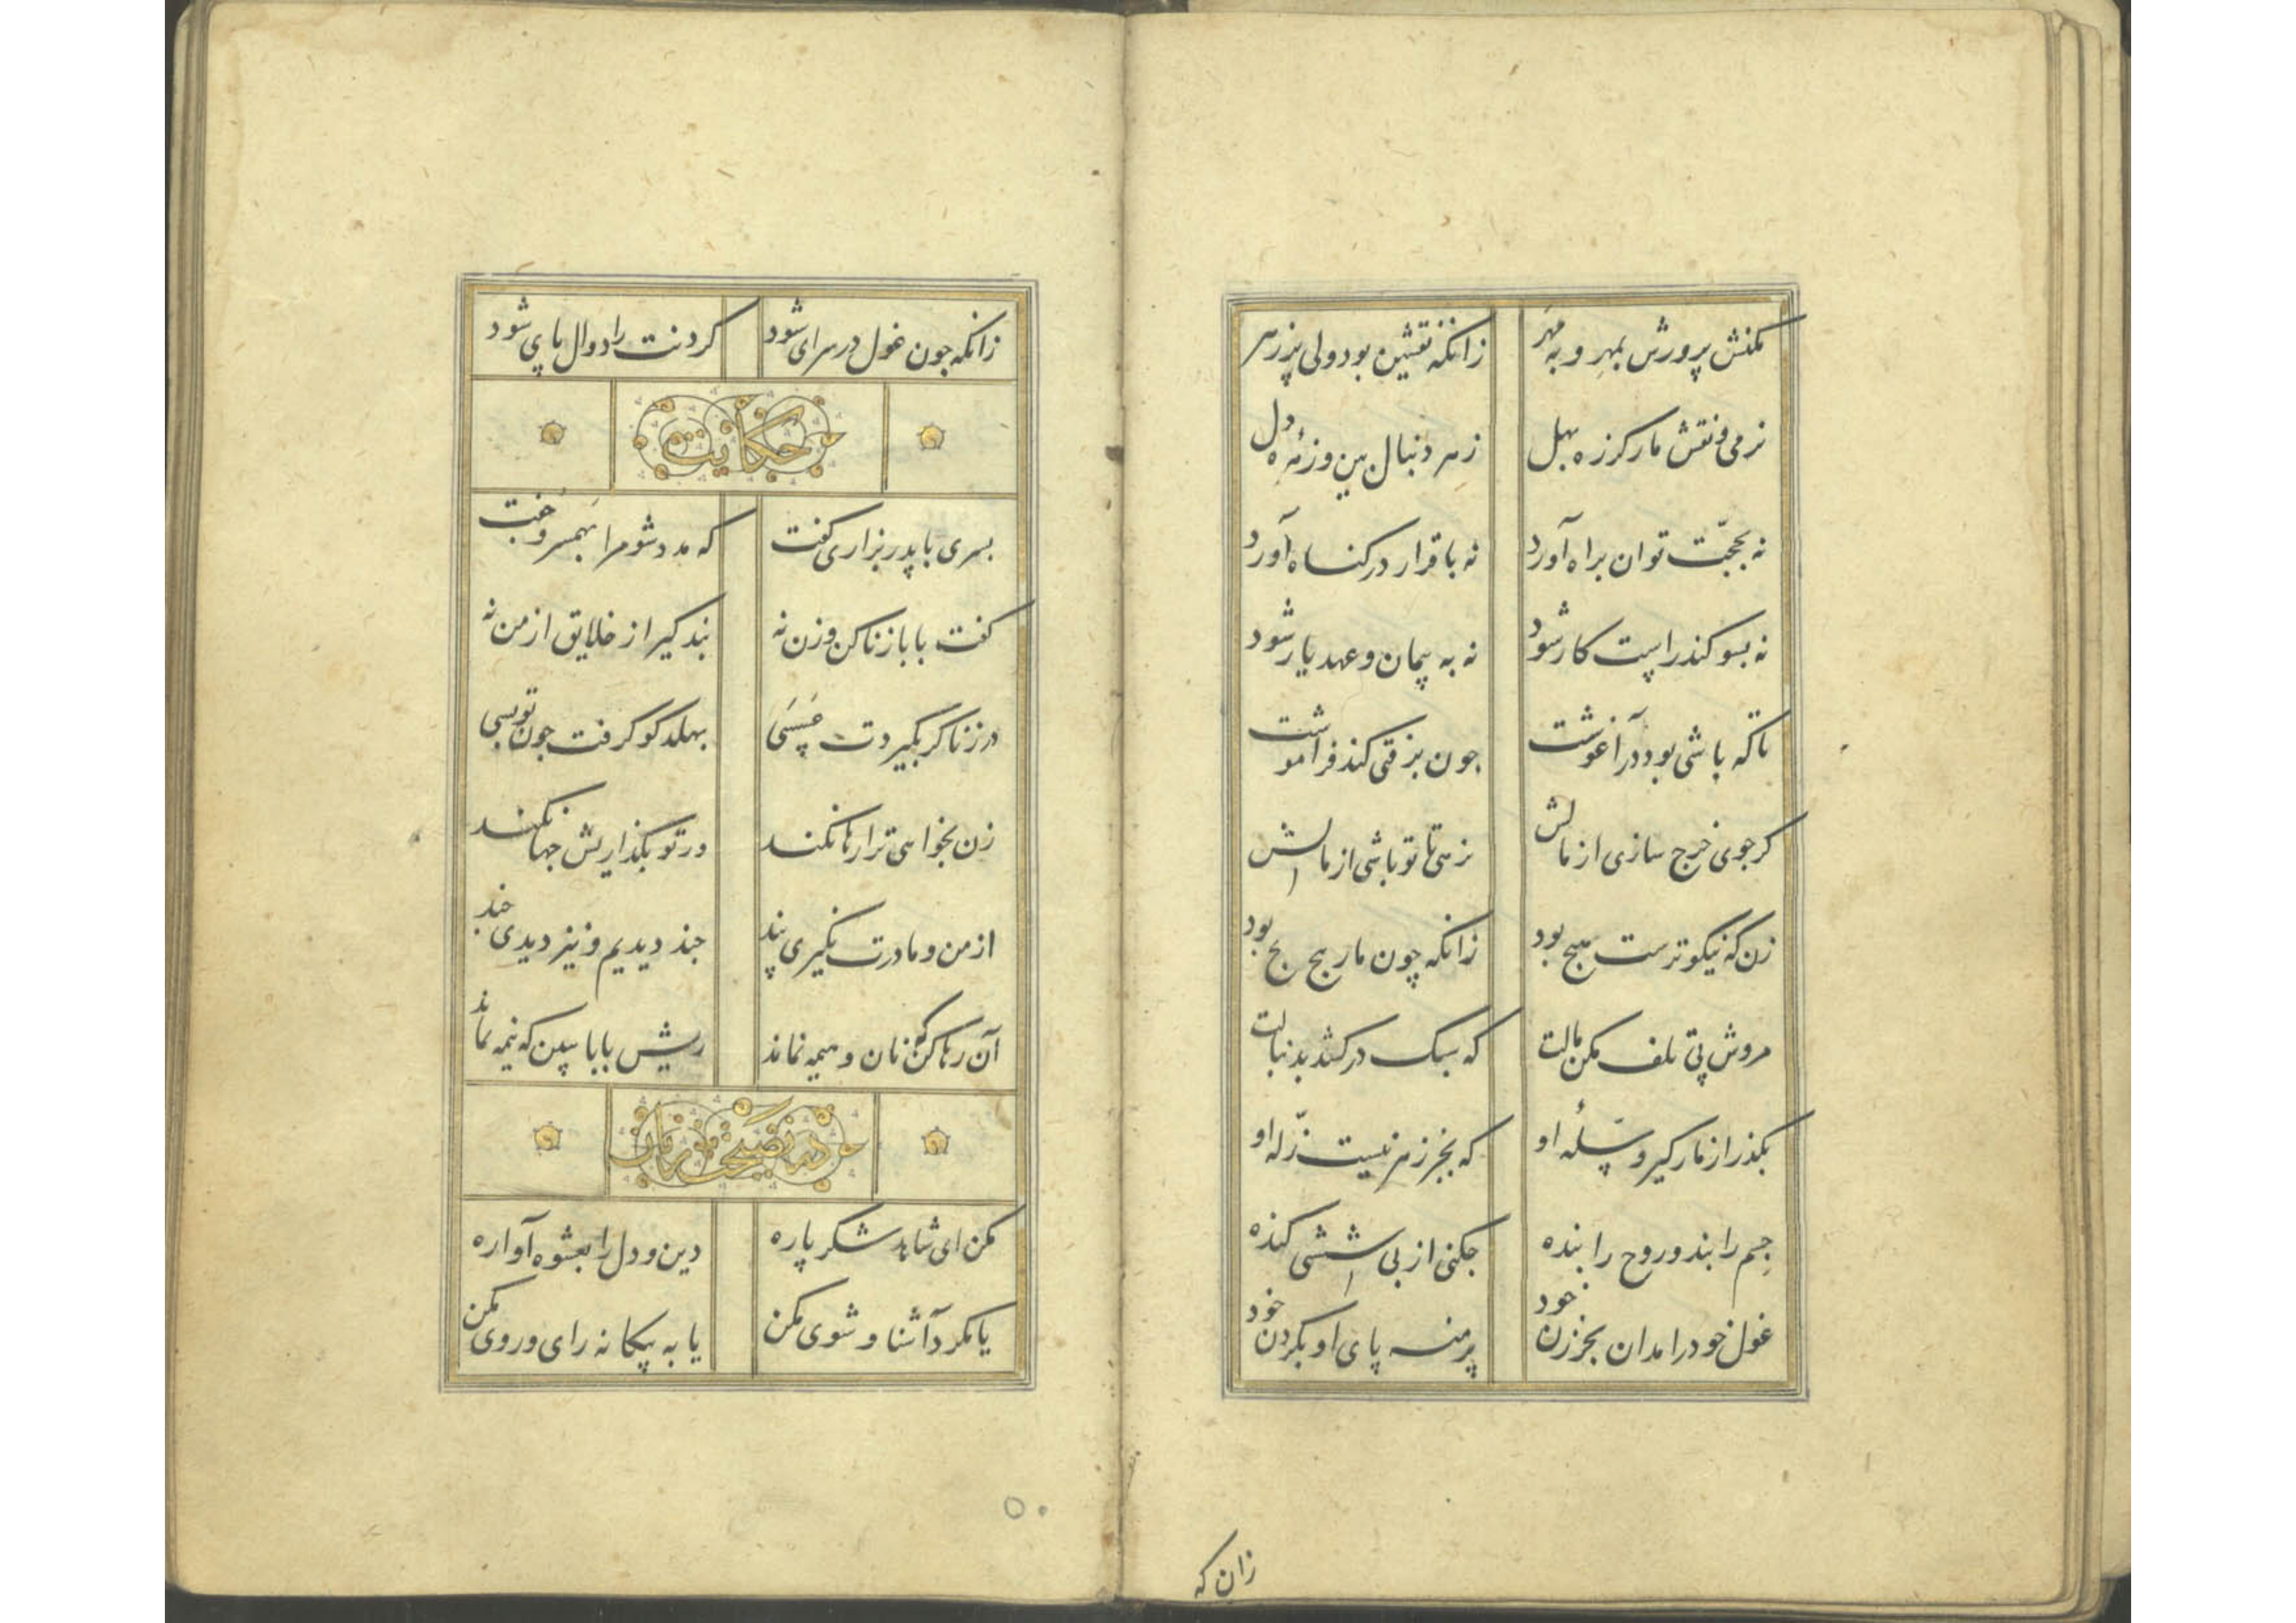 مکنش پرورش بمهر و به مهر زانکه نقشین بود ولی پر زهر
نرمی و نقش مار کرزه بهل زهر دنبال بین و زمره دل
نه بحجت توان براه آورد نه باقرار در کناه آورد
نه بسوکند راست کار شود نه به پیمان و عهد یار شود
تا که باشی بود در آغوشت جون برفتی کند فراموشت
کر جوی خرج سازی از مالش نرهی تا تو باشی از مالش
زن که نیکوترست هیچ بود زانکه چون مار پیچ پیچ بود
مروش پی تلف مکن مالت که سبک در کشد بدنبالت
بکذر از مارکیر و سله او که بجز زهر نیست زله او
جسم را بند و روح را بنده جکنی از پی ششی کنده
غول خود را مدان بجز زن خود بر منه پای او بکردن خود
زان که
زانکه جون غول در سرای شود کردنت را دوال پای شود
حکایت
پسری با پدر بزاری کفت که مدد شو مرا بهمسر و جفت
کفت بابا زنا کن و زن نه پند کیر از خلایق از من نه
در زنا کر بکیردت عسسی بهلد کو کرفت جون تو بسی
زن بخواهی ترا رها نکند ور تو بکذاریش جها نکند
از من و مادرت نکیری پند جند دیدیم و نیز دیدی جند
آن رها کن که نان و هیمه نماند ریش بابا ببین که نیمه نماند
در نصیحت زنان
مکن ای شاهد شکر پاره دین و دل را بعشوه آواره
یا مکرد آشنا و شوی مکن یا به بیکانه رای و روی مکن
۵۰